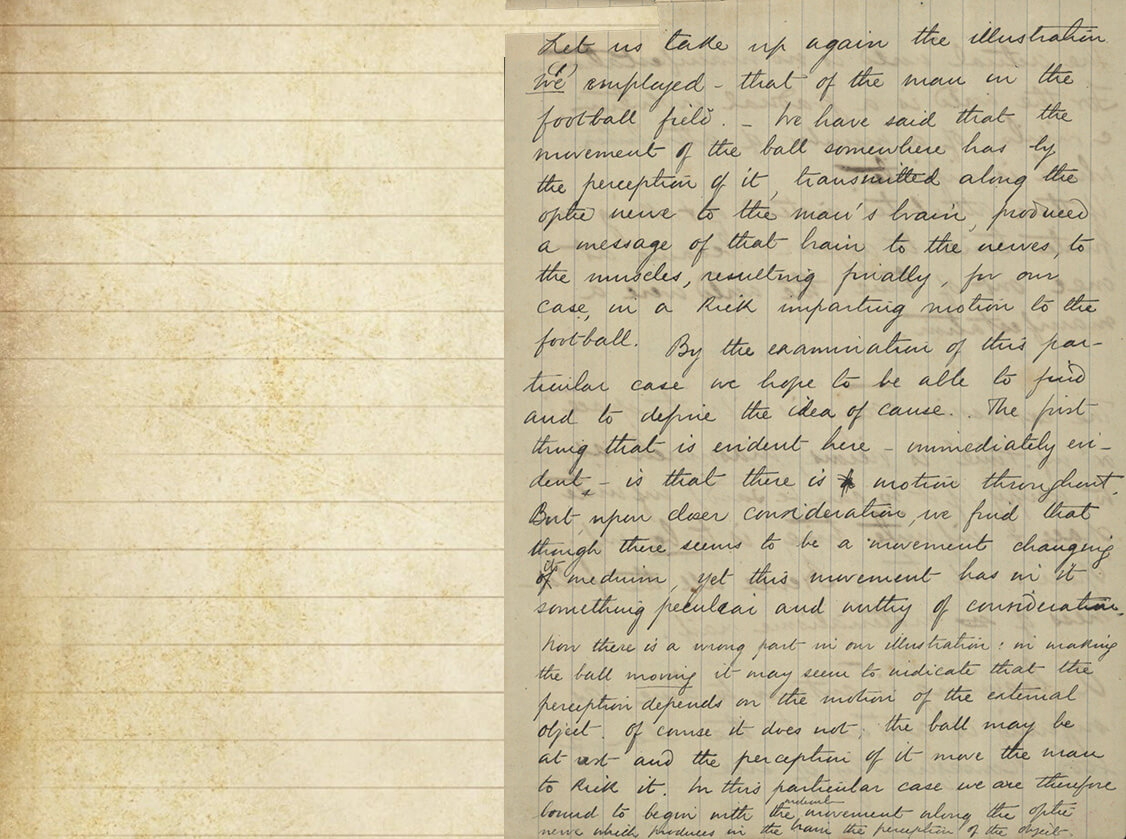 Let us take up again the illustration
we employed - that of the man in the
football field. - We have said that the
movement of the ball somewhere has by
the perception of it, transmitted along the
optic nerve to the man's brain, produced
a message of that brain to the nerves, to
the muscles, resulting finally, for our
case, in a kick imparting motion to the
football. By the examination of this par-
ticular case we hope to be able to find
and to define the idea of cause. The first
thing that is evident here - immediately evi-
dent - is that there is motion throughout.
But, upon closer consideration, we find that
though there seems to be a movement changing
its medium, yet this movement has in it
something peculiar and worthy of consideration.
Now there is a wrong part in our illustration: in making
the ball moving it may seem to indicate that the
perception depends on the motion of the external
object. Of course it does not; the ball may be
at rest and the perception of it move the man
to kick it. In this particular case we are therefore
bound to begin with the movement along the optic
nerve which produces in the brain the perception of the object